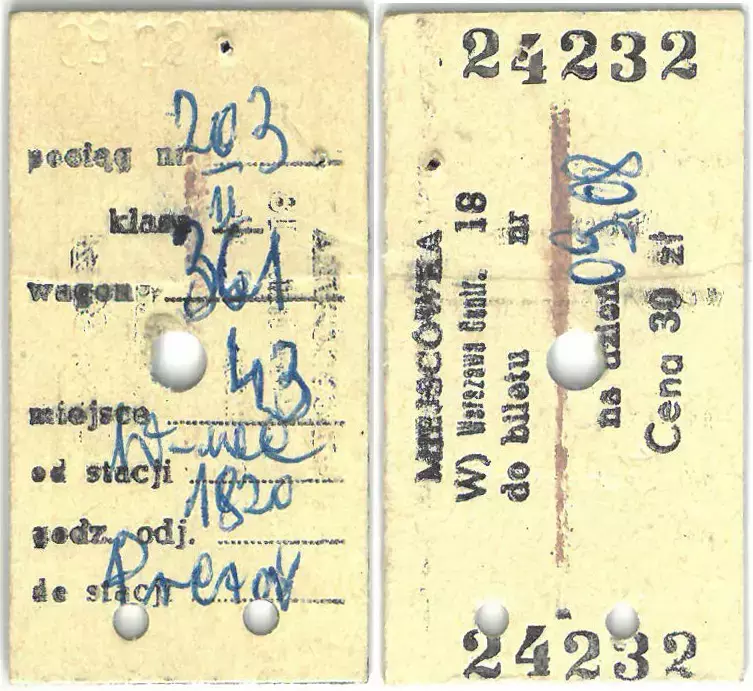 pociąg nr 203
klasy II
wagon 361
miejsce 43
od stacji W-wa
godz. odj. 1820
do stacji Presov
24232
MIEJSCÓWKA
W) Warszawa Centr. 18
do biletu nr
na dzień 03.08
Cena 30 zł
24232